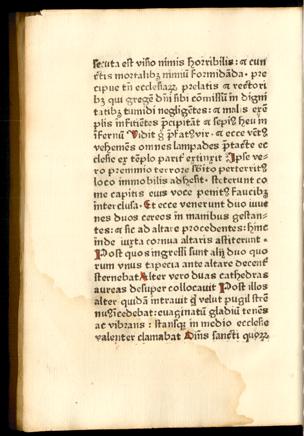 secuta est visio nimis horribilis: et cun
ctis mortalibꝫ nimiū formidāda. pre
cipue tn̄ ecclesiaꝝ prelatis et rectori
bꝫ qui gregē dn̄i sibi cōmissū in digni
tatibꝫ tumidi negligētes: et malis exē
plis inficiētes p̄cipitāt et sepiꝰ heu in
ifernū Vidit g̊ p̄fatꝰ vir. et ecce vētꝰ
vehemēs omnes lampades p̄tacte ec
clesie ex tēplo parit̓ extinxit Ipse ve
ro premnio terrore sb̓ito perterritꝰ
loco immobilis adhesit. steterunt co
me capitis eius voce penitꝰ faucibꝫ
interclusa. Et ecce venerunt duo iuue
nes duos cereos in manibus gestan
tes: et sic ad altare procedentes: hinc
inde iuxta cornua altaris astiterunt.
Post quos ingressi sunt alij duo quo
rum vnus tapecia ante altare decent̓
sternebat Alter vero duas cathedras
aureas desuper collocauit Post illos
alter quidā intrauit q̄ velut pugil strē
nuꝰ incedebat: euaginatū gladiū tenēs
ac vibrans: stansqꝫ in medio ecclesie
valenter clamabat Om̄s sancti quoꝝ